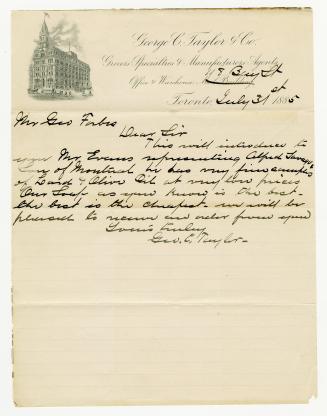 George C. Taylor & Co.
Grocers Specialties & Manufacturers Agents
Office & Warehouse 49 Bay St
Toronto, July 31st 1885
Mr Geo Forbes
Dear Sir
This will introduce to
your Mr. Evans representing Alfred Savage
of Montreal he has very fine samples
of Lard & Olive Oil at very low prices
Our Soap as you know is the best
the best is the cheapest we will be
pleased to receive an order from you
Yours truly
Geo. C. Taylor